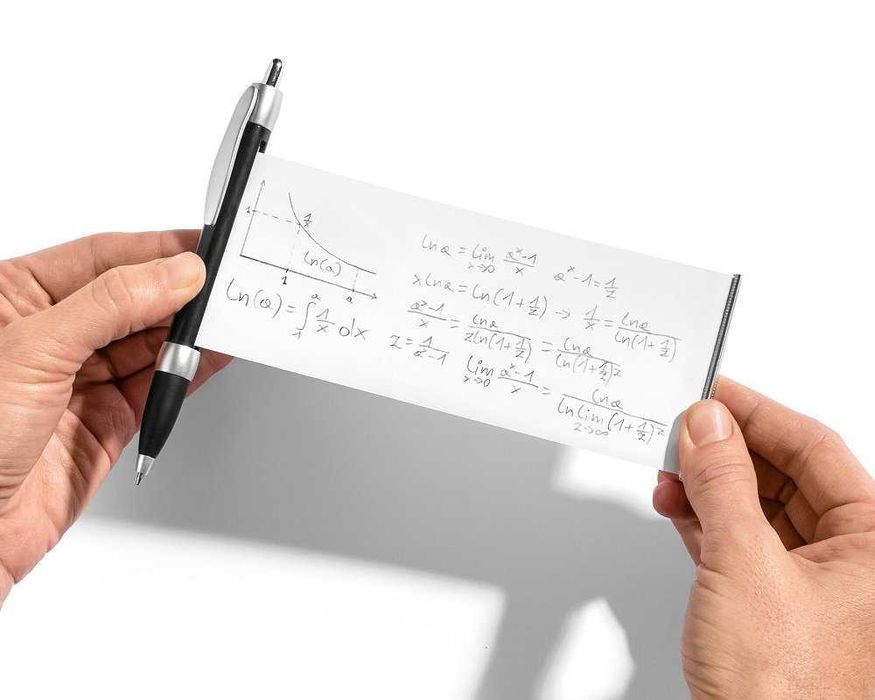 1
1/x
ln(a)
1
a
ln(a) = ∫₁ᵃ 1/x dx
ln a = lim x→0 (aˣ-1)/x    aˣ-1 = 1/z
x ln a = ln(1+1/z) → 1/x = ln a / ln(1+1/z)
(aˣ-1)/x = ln a / z ln(1+1/z) = ln a / ln(1+1/z)ᶻ
z = 1/(aˣ-1)    lim x→0 (aˣ-1)/x = ln a / ln lim z→∞ (1+1/z)ᶻ